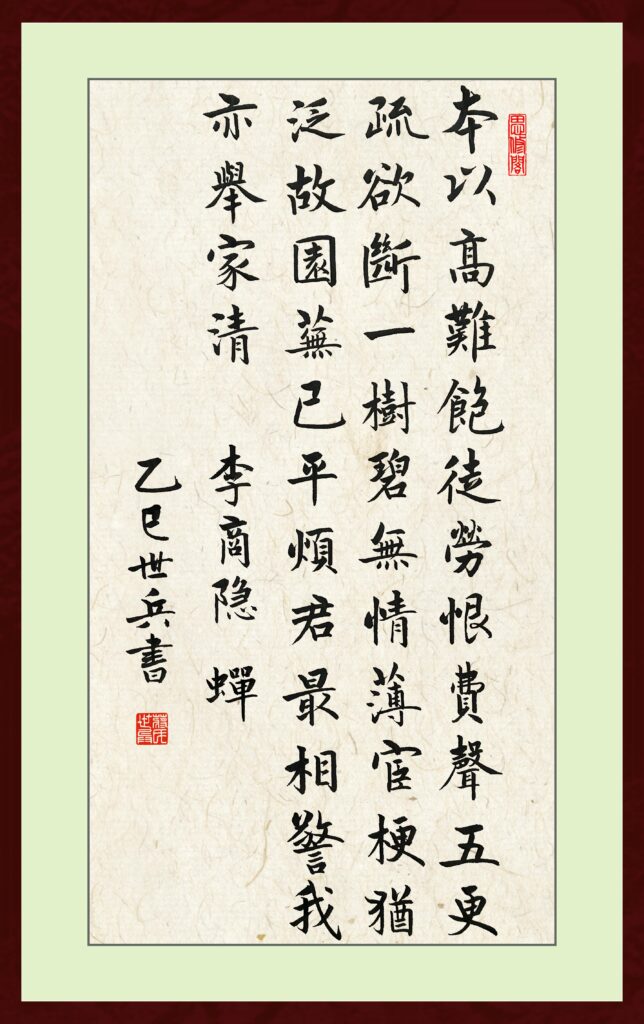 思修閣
本以高難飽徒勞恨費聲五更
疏欲斷一樹碧無情薄宦梗猶
泛故園蕪已平煩君最相警我
亦舉家清 李商隐 蟬
乙巳世兵書